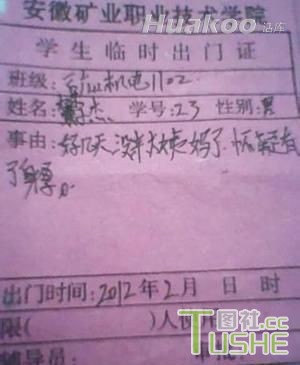 Huakoo 话库
安徽矿业职业技术学院
学生临时出门证
班级:矿山机电1102
姓名:杰 学号:23 性别:男
事由:好几天没来大姨妈了.怀疑有
了身孕。
出门时间:2012年2月 日 时
限( )人使用
辅导员:
图社.cc
TUSHE